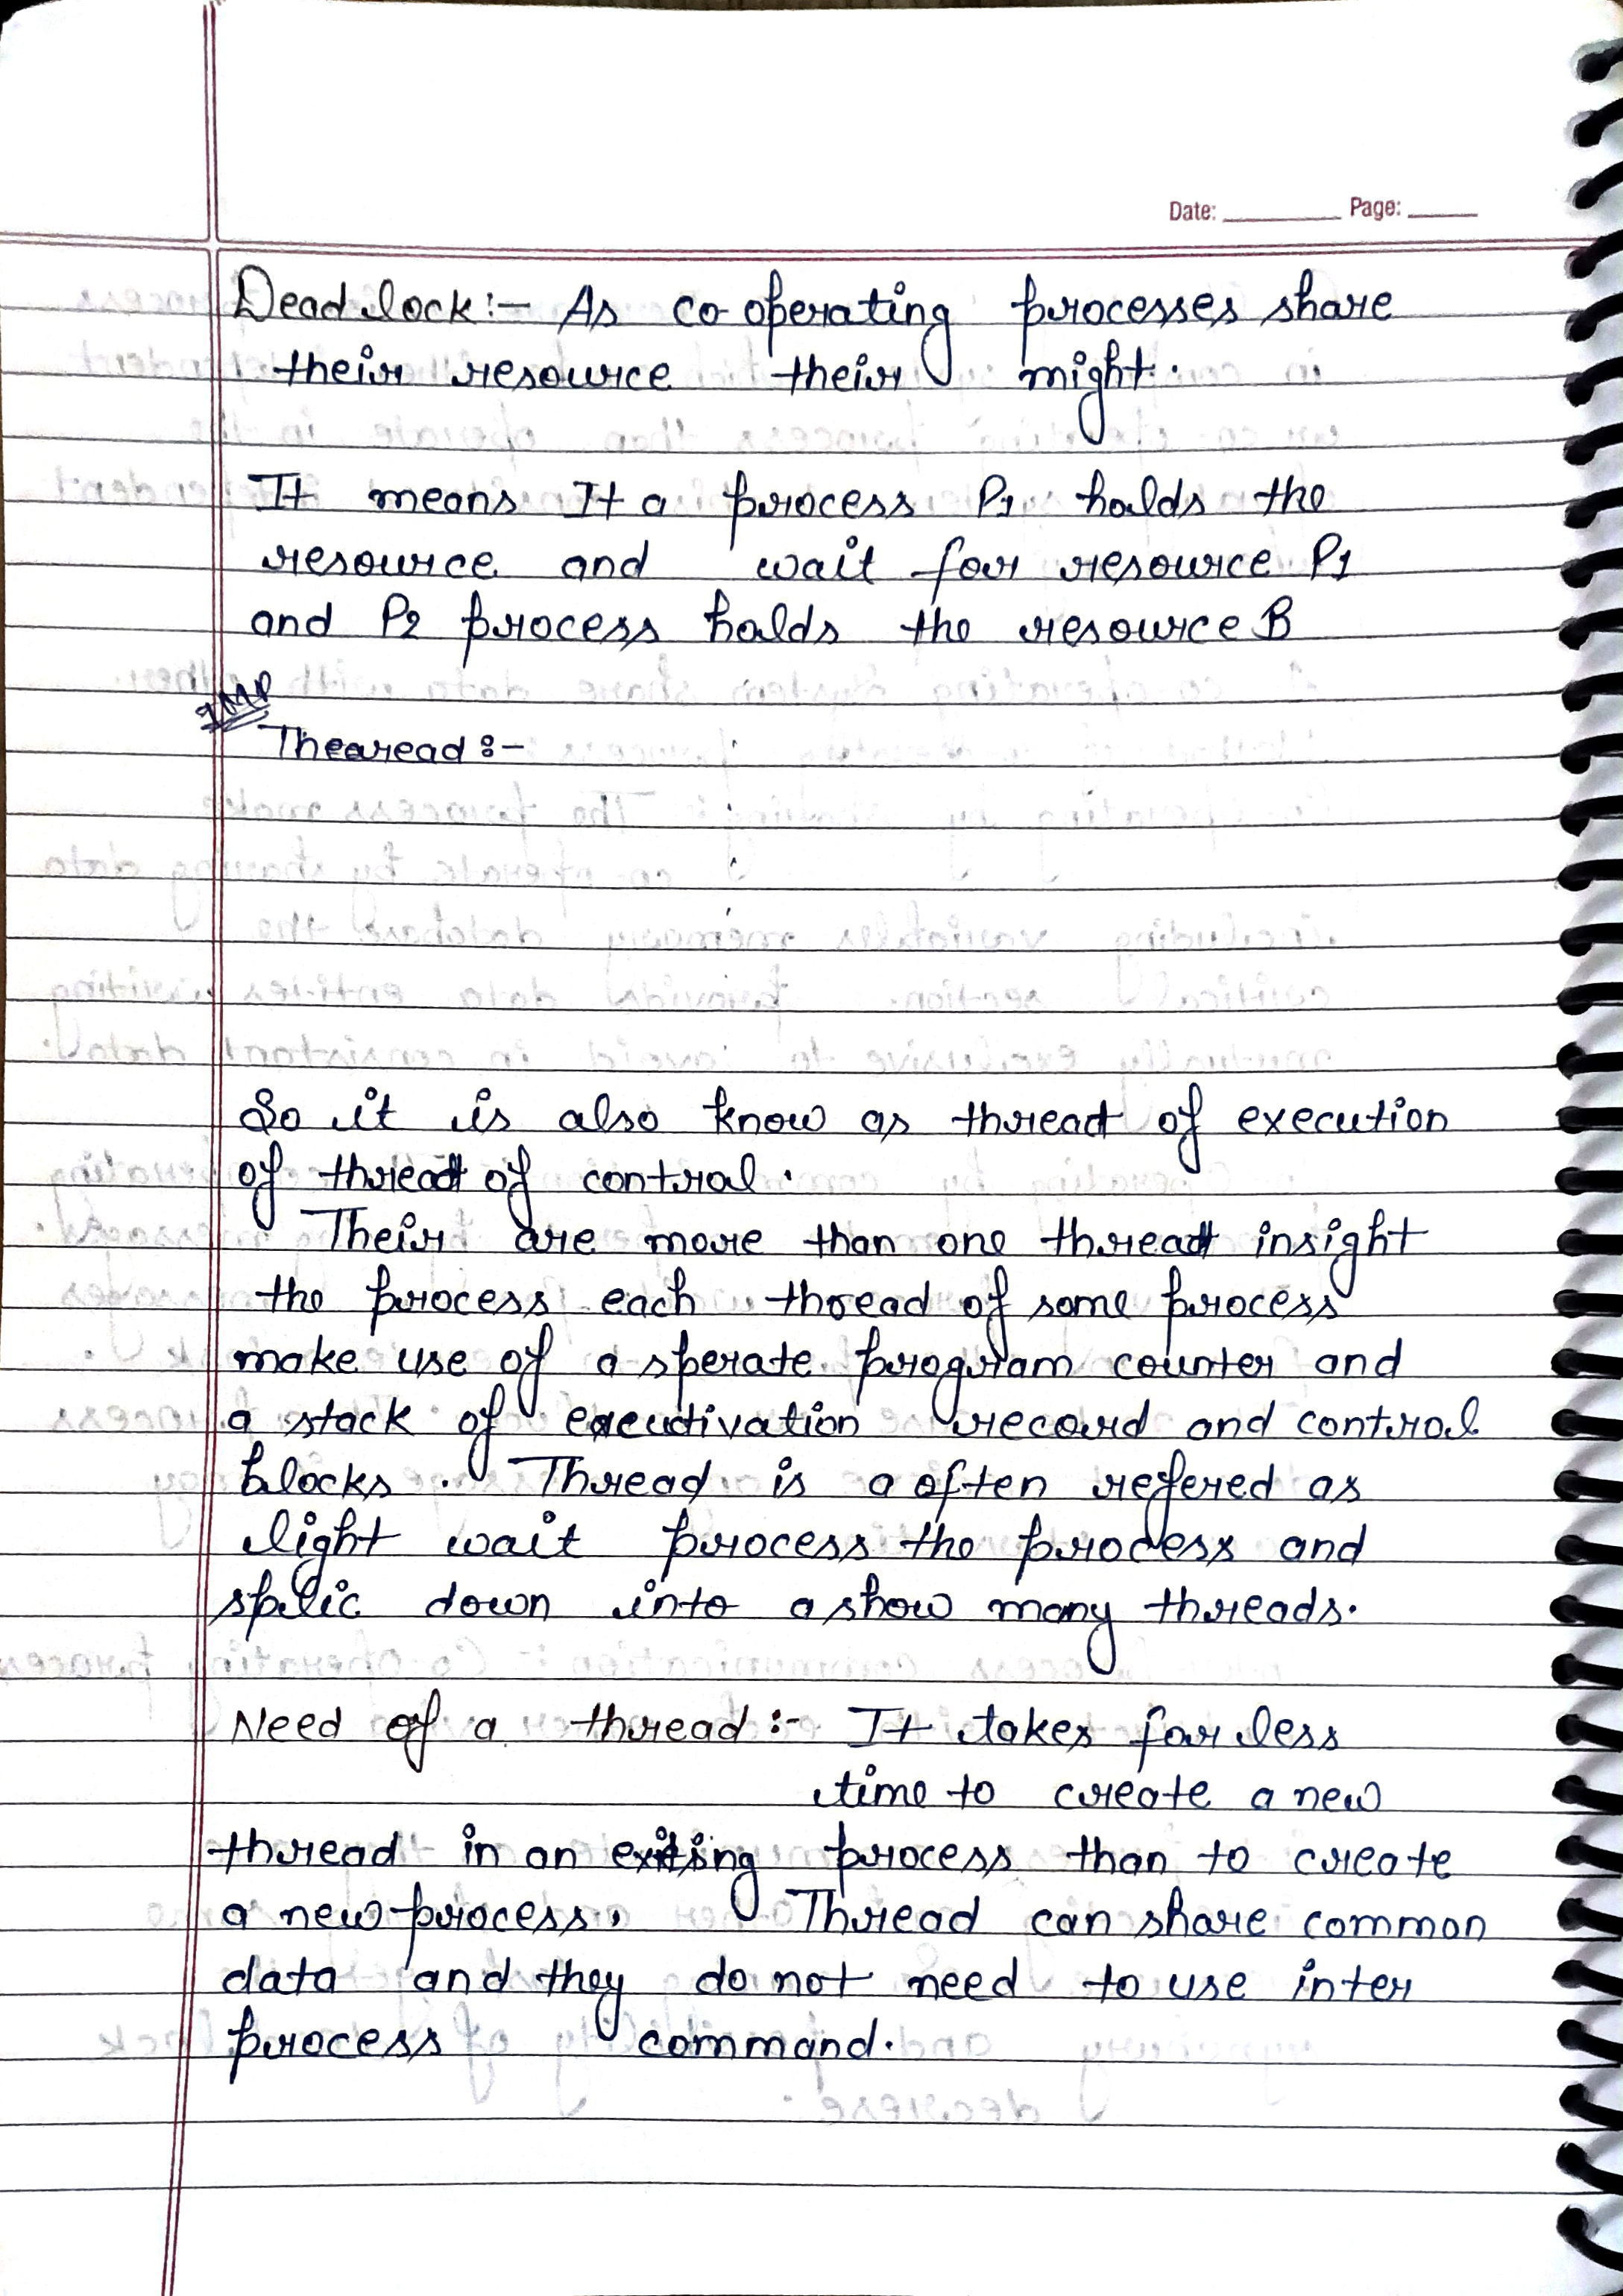 Date: Page:
Dead lock:- As co-operating processes share
their resource their might.
It means It a process P1 holds the
resource and wait for resource P1
and P2 process holds the resource B
IMP
Thearead :-
So it is also know as thread of execution
of thread of control.
Their are more than one thread insight
the process each thread of some process
make use of a sperate program counter and
a stack of record and control
blocks. Thread is a often refered as
light wait process the process and
splic down into a show many threads.
Need of a thread :- It takes far less
time to create a new
thread in an exiting process than to create
a new process, Thread can share common
data and they do not need to use inter
process command.